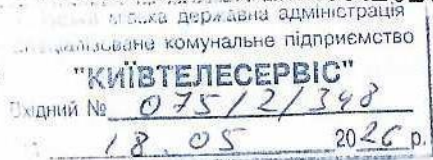 міська державна адміністрація
спеціалізоване комунальне підприємство
"КИЇВТЕЛЕСЕРВІС"
Вхідний № 075/2/348
18.05 2026 р.